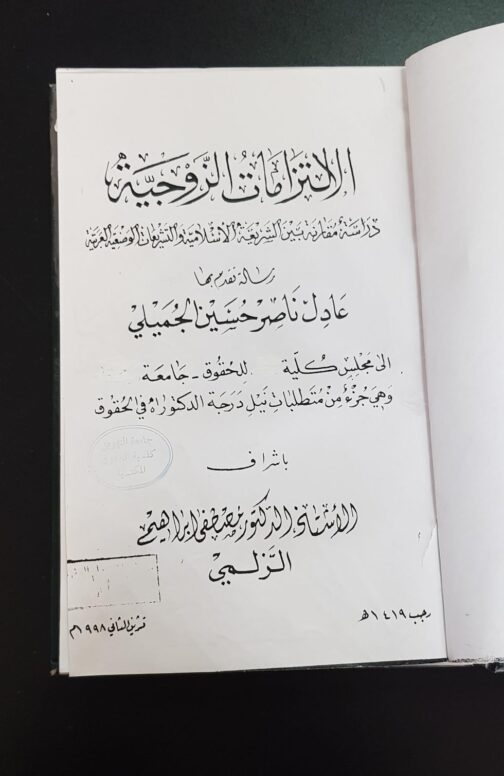 الالتزامات الزوجية
دراسة مقارنة بين الشريعة الاسلامية والتشريعات الوضعية العربية
رسالة تقدم بها
عادل ناصر حسين الجميلي
الى مجلس كلية للحقوق - جامعة
وهي جزء من متطلبات نيل درجة الدكتوراه في الحقوق
باشراف
الأستاذ الدكتور مصطفى ابراهيم
الزلمي
رجب ١٤١٩هـ
تشرين الثاني ١٩٩٨م